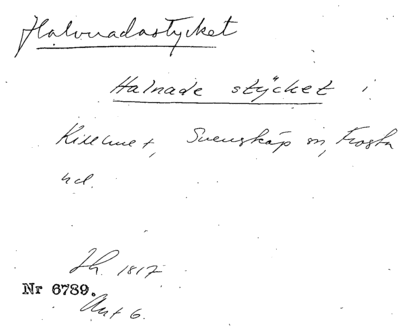 Halvnadastycket
Halnade stycket i
Killhult, Svensköp sn, Frosta
hd.
Sh. 1817
Nr 6789.
Akt 6.